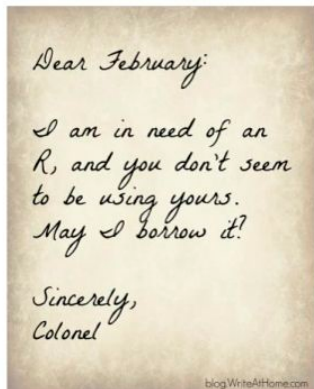 Dear February:
I am in need of an
R, and you don't seem
to be using yours.
May I borrow it?
Sincerely,
Colonel
blog.WriteAtHome.com